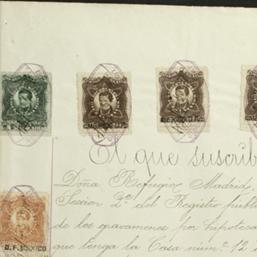 D. F. MEXICO
El que suscrib
D. F. MEXICO
Doña Refugio Madrid,
Sesion 2ª del Registro públ
de los gravamenes por hipoteca
que tenga la Casa num.º 12 d